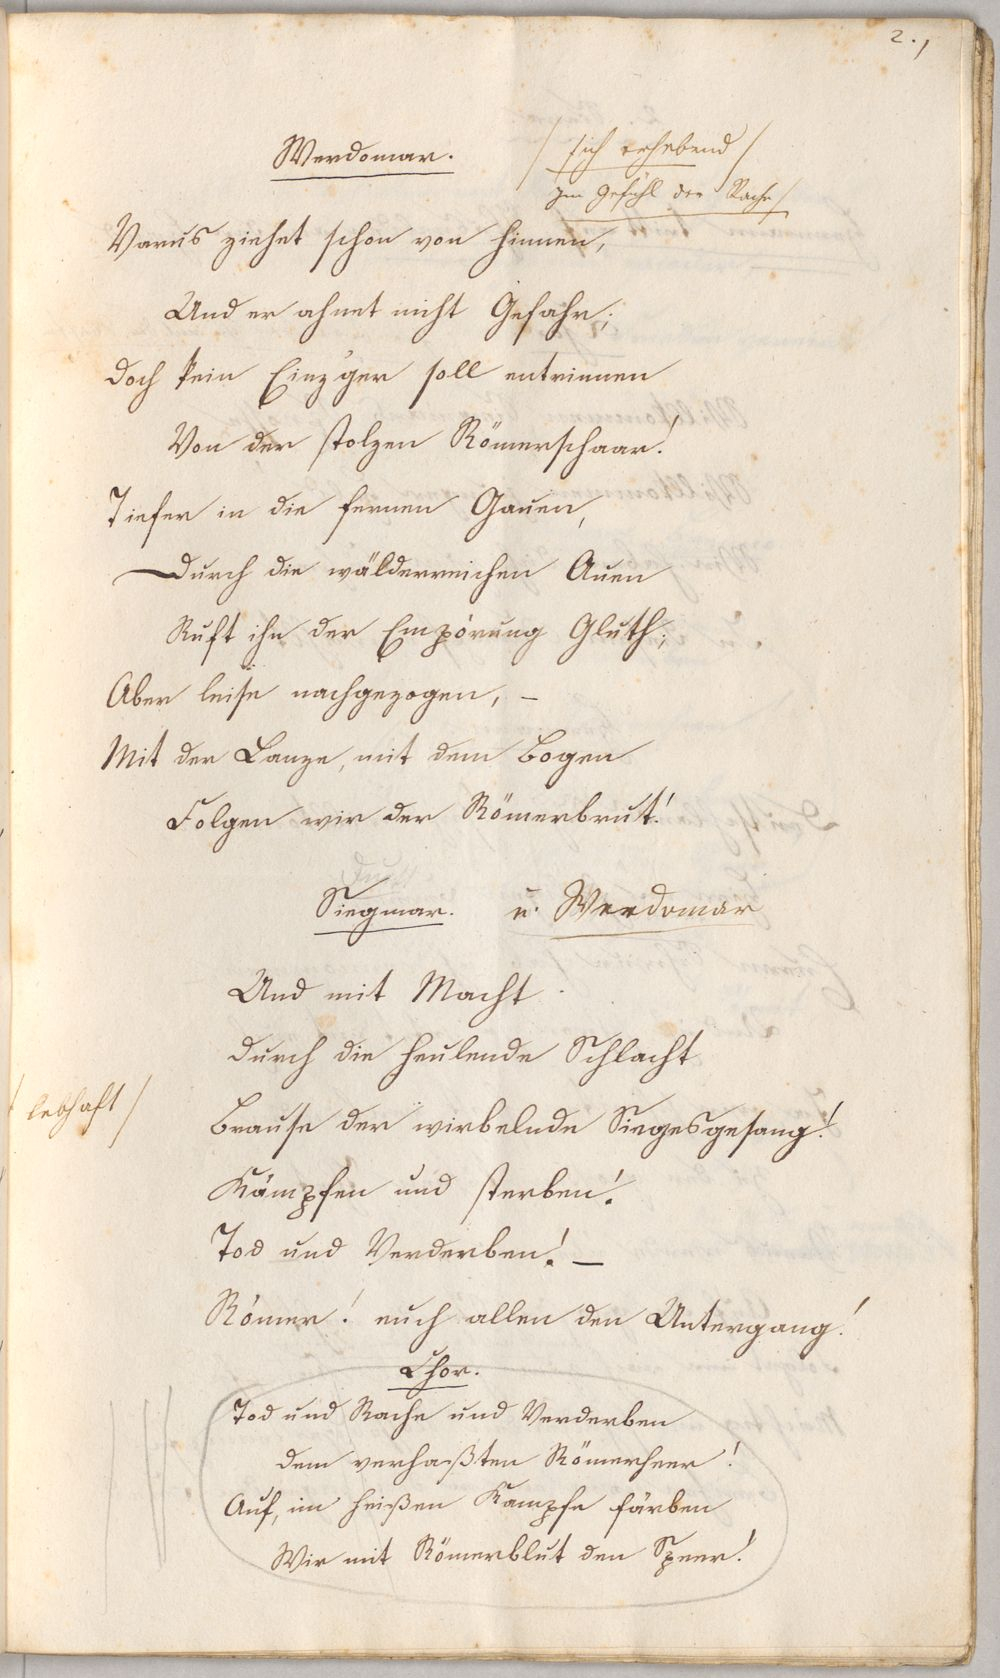 2.
Werdomar.
/ sich erhebend /
im Gefühl der Rache /
Varus ziehet schon von hinnen,
Und er ahnet nicht Gefahr;
Doch kein Einz'ger soll entrinnen
Von der stolzen Römerschaar!
Tiefer in die fernen Gauen,
Durch die wälderreichen Auen
Ruft ihn der Empörung Gluth;
Aber leise nachgezogen, –
Mit der Lanze, mit dem Bogen
Folgen wir der Römerbrut!
Siegmar. u. Werdomar
Und mit Macht
Durch die heulende Schlacht
/ lebhaft /
Brause der wirbelnde Siegesgesang!
Kämpfen und sterben!
Tod und Verderben! –
Römer! euch allen den Untergang!
Chor.
Tod und Rache und Verderben
Dem verhaßten Römerheer!
Auf, im heißen Kampfe färben
Wir mit Römerblut den Speer!